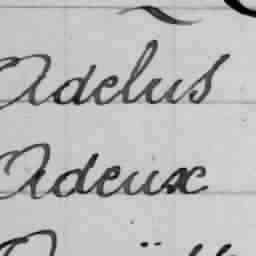 Adelus
Adeux